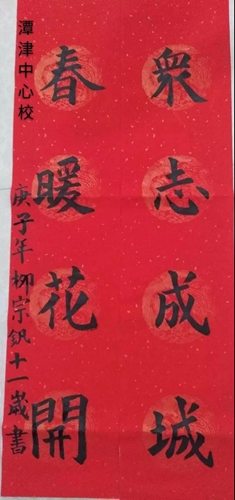 眾志成城
春暖花開
潭津中心校
庚子年柳宗釩十一歲書